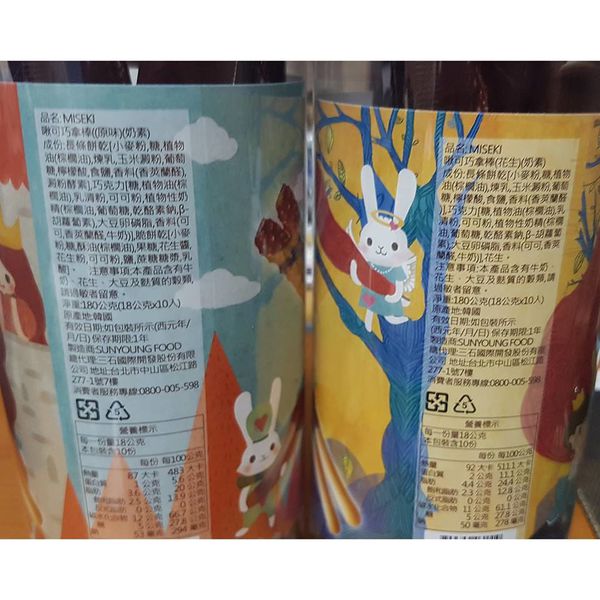 品名: MISEKI
啾可巧拿棒((原味)(奶素)
成份:長條餅乾[小麥粉,糖,植物
油(棕櫚油),煉乳,玉米澱粉,葡萄
糖,檸檬酸,食鹽,香料(香莢蘭醛),
澱粉酵素],巧克力[糖,植物油(棕
櫚油),乳清粉,可可粉,植物性奶
精(棕櫚油,葡萄糖,乾酪素鈉,β-
胡蘿蔔素),大豆卵磷脂,香料(可
可,香莢蘭醛,牛奶)],脆餅乾(小麥
粉,糖,酥油(棕櫚油),果糖,花生醬,
花生粉,可可粉,鹽,蔗糖糖漿,乳
酸]。 注意事項:本產品含有牛
奶、花生、大豆及麩質的穀類,
請過敏者留意。
淨重:180公克(18公克x10入)
原產地:韓國
有效日期:如包裝所示(西元年/
月/日) 保存期限:1年
製造商:SUNYOUNG FOOD
總代理:三石國際開發股份有限
公司 地址:台北市中山區松江路
277-1號7樓
消費者服務專線:0800-005-598
營養標示
每一份量18公克
本包裝含10份
每份 每100公克
熱量 87 大卡 483 大卡
蛋白質 1 公克 5.6 公克
脂肪 3.6 公克 20 公克
飽和脂肪 2.5 公克 13.9 公克
反式脂肪 0 公克 0 公克
碳水化合物 12 公克 66.7 公克
糖 5 公克 27.8 公克
鈉 53 毫克 294 毫克
品名: MISEKI
啾可巧拿棒(花生)(奶素)
成份:長條餅乾[小麥粉,糖,植物
油(棕櫚油),煉乳,玉米澱粉,葡萄
糖,檸檬酸,食鹽,香料(香莢蘭醛)
],巧克力[糖,植物油(棕櫚油),乳
清粉,可可粉,植物性奶精(棕櫚
油,葡萄糖,乾酪素鈉,β-胡蘿蔔
素),大豆卵磷脂,香料(可可,香莢
蘭醛,牛奶)],花生。
注意事項:本產品含有牛奶、
花生、大豆及麩質的穀類,請過
敏者留意。
淨重:180公克(18公克x10入)
原產地:韓國
有效日期:如包裝所示
(西元年/月/日) 保存期限:1年
製造商:SUNYOUNG FOOD
總代理:三石國際開發股份有限
公司 地址:台北市中山區松江路
277-1號7樓
消費者服務專線:0800-005-598
營養標示
每一份量18公克
本包裝含10份
每份 每100公克
熱量 92 大卡 511.1 大卡
蛋白質 2 公克 11.1 公克
脂肪 4.4 公克 24.4 公克
飽和脂肪 2.3 公克 12.8 公克
反式脂肪 0 公克 0 公克
碳水化合物 11 公克 61.1 公克
糖 5 公克 27.8 公克
鈉 50 毫克 278 毫克